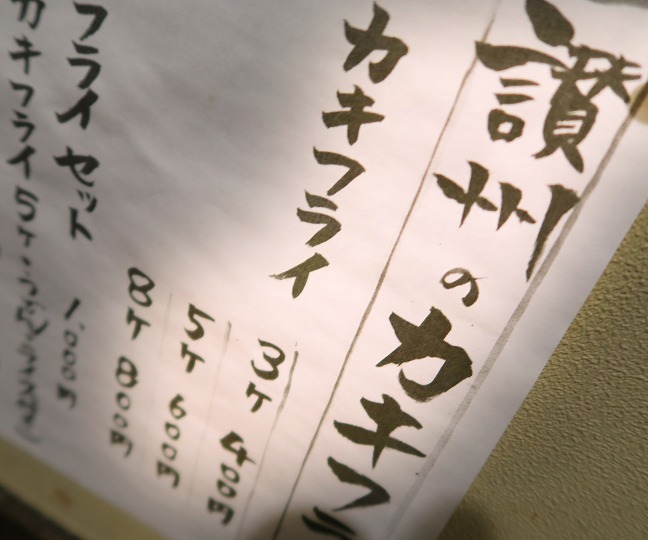 讃州のカキフラ
カキフライ
3ケ 400円
5ケ 600円
8ケ 800円
フライセット 1,000円
カキフライ5ケ